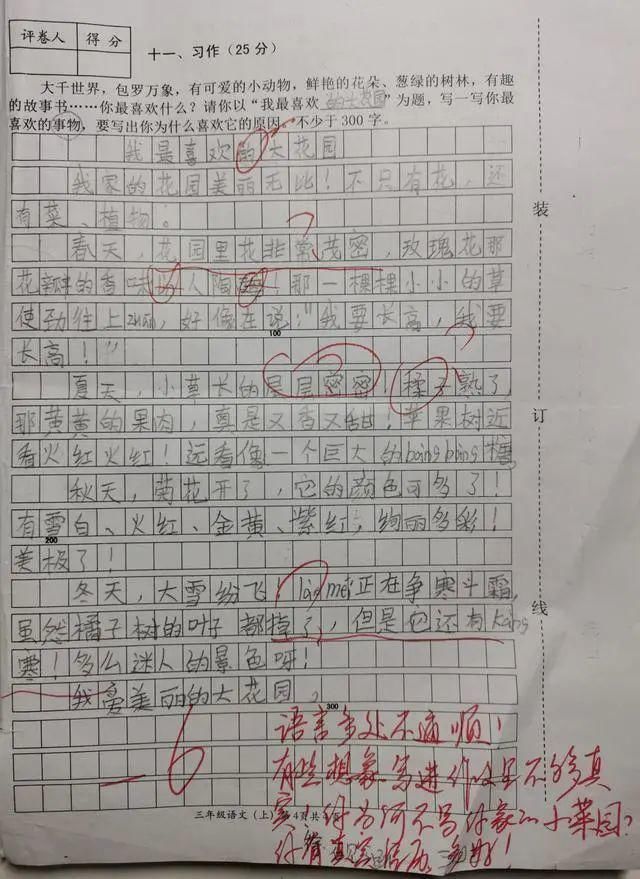 评卷人 得分
十一、习作(25分)
大千世界，包罗万象，有可爱的小动物，鲜艳的花朵、葱绿的树林，有趣
的故事书……你最喜欢什么？请你以“我最喜欢 的大花园”为题，写一写你最
喜欢的事物，要写出你为什么喜欢它的原因。不少于300字。
我最喜欢的大花园
我家的花园美丽无比！不只有花，还
有菜、植物。
春天，花园里花非常茂密，玫瑰花那
花瓣的香味 人陶 那一棵棵小小的草
使劲往上 ，好像在说：“我要长高，我要
长高！”
100
夏天，小草长的层层密密！ 子熟了，
那黄黄的果肉，真是又香又甜！苹果树近
看火红火红！远看像一个巨大的bàng bàng糖
秋天，菊花开了，它的颜色可多了！
有雪白、火红、金黄、紫红，绚丽多彩！
200
美极了！
冬天，大雪纷飞！là mei正在争寒斗霜，
虽然橘子树的叶子都掉了，但是它还有kàng
寒！多么迷人的景色呀！
我爱美丽的大花园。
300
-6
语言多处不通顺！
有些想象写进作文里不够真
实！你为何不写你家的小菜园？
三年级语文（上） 第4页共4页
装
订
线